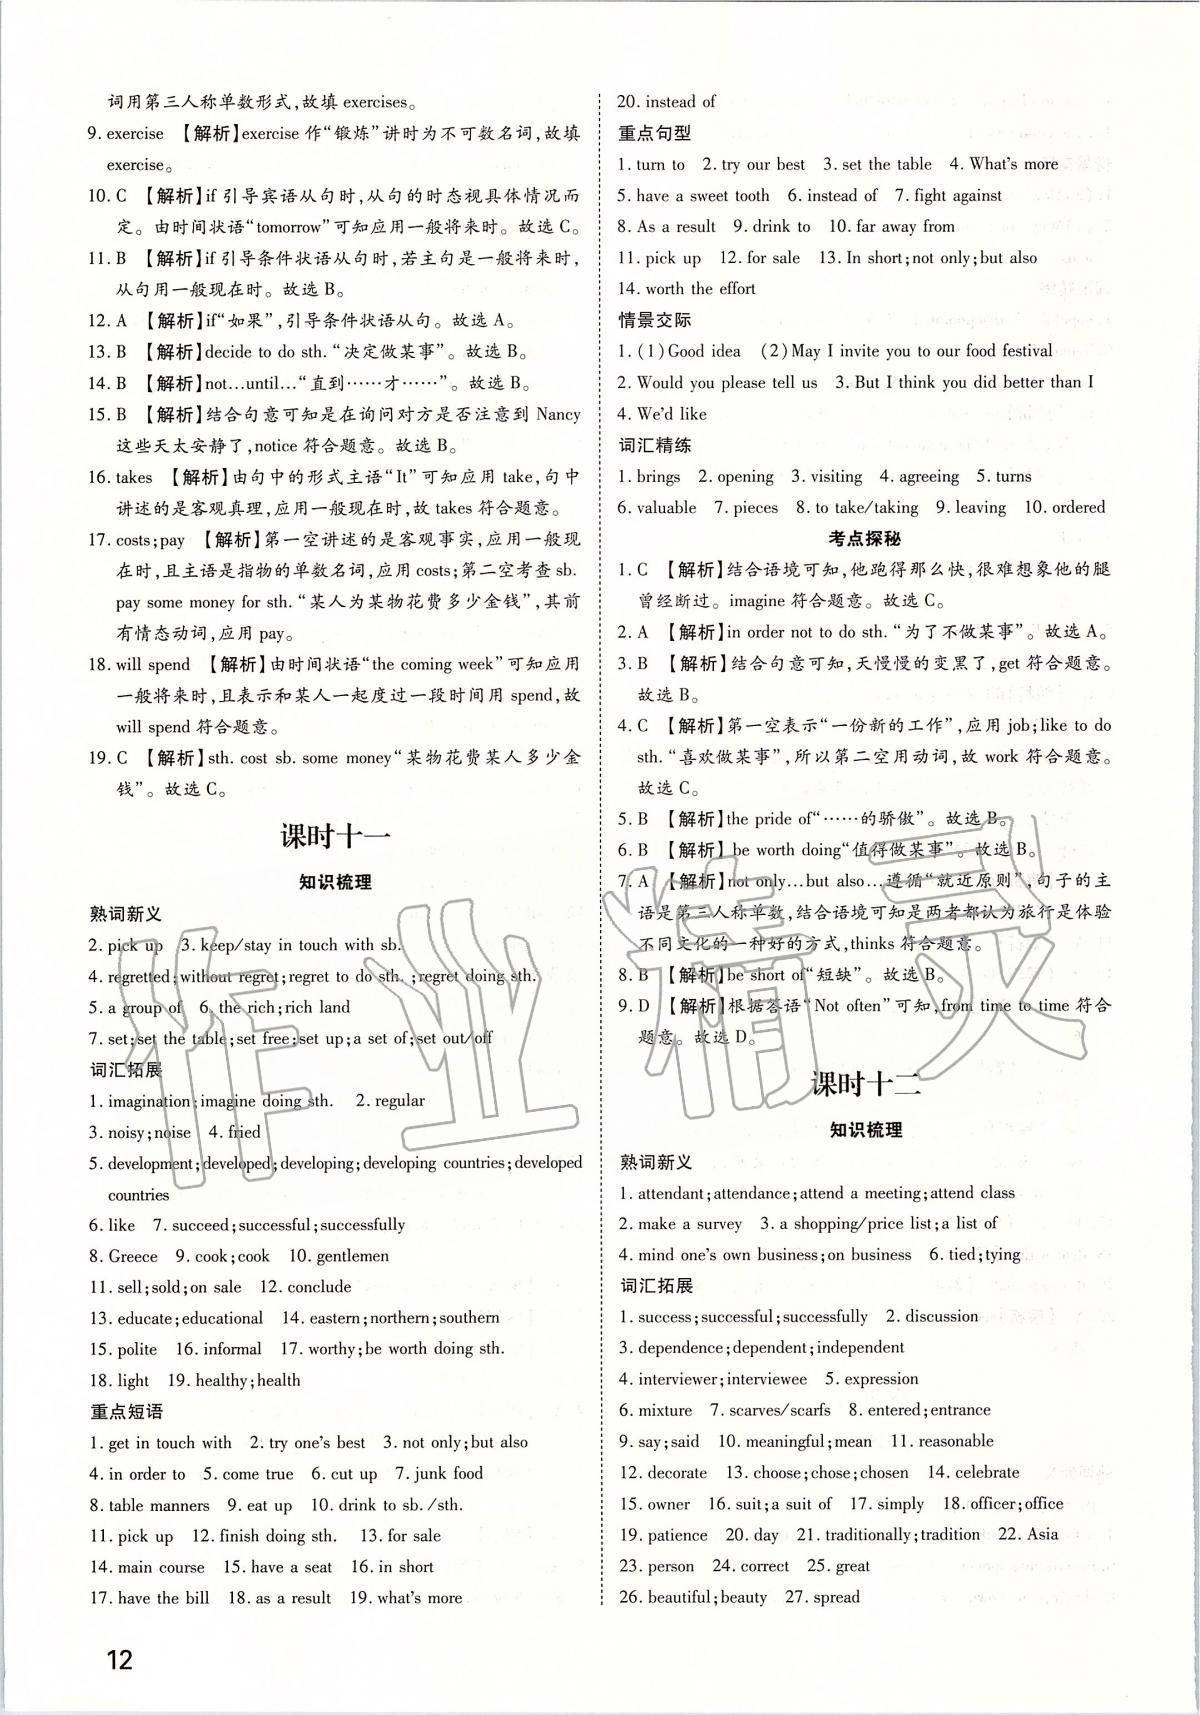 词用第三人称单数形式,故填 exercises。
9. exercise 【解析】exercise 作“锻炼”讲时为不可数名词,故填
exercise。
10. C 【解析】if 引导宾语从句时,从句的时态视具体情况而
定。由时间状语“tomorrow”可知应用一般将来时。故选 C。
11. B 【解析】if 引导条件状语从句时,若主句是一般将来时,
从句用一般现在时。故选 B。
12. A 【解析】if“如果”,引导条件状语从句。故选 A。
13. B 【解析】decide to do sth. “决定做某事”。故选 B。
14. B 【解析】not…until…“直到……才……”。故选 B。
15. B 【解析】结合句意可知是在询问对方是否注意到 Nancy
这些天太安静了,notice 符合题意。故选 B。
16. takes 【解析】由句中的形式主语“It”可知应用 take,句中
讲述的是客观真理,应用一般现在时,故 takes 符合题意。
17. costs;pay 【解析】第一空讲述的是客观事实,应用一般现
在时,且主语是指物的单数名词,应用 costs;第二空考查 sb.
pay some money for sth. “某人为某物花费多少金钱”,其前
有情态动词,应用 pay。
18. will spend 【解析】由时间状语“the coming week”可知应用
一般将来时,且表示和某人一起度过一段时间用 spend,故
will spend 符合题意。
19. C 【解析】sth. cost sb. some money“某物花费某人多少金
钱”。故选 C。
课时十一
知识梳理
熟词新义
2. pick up 3. keep/stay in touch with sb.
4. regretted;without regret;regret to do sth. ;regret doing sth.
5. a group of 6. the rich;rich land
7. set;set the table;set free;set up;a set of;set out/off
词汇拓展
1. imagination;imagine doing sth. 2. regular
3. noisy;noise 4. fried
5. development;developed;developing;developing countries;developed
countries
6. like 7. succeed;successful;successfully
8. Greece 9. cook;cook 10. gentlemen
11. sell;sold;on sale 12. conclude
13. educate;educational 14. eastern;northern;southern
15. polite 16. informal 17. worthy;be worth doing sth.
18. light 19. healthy;health
重点短语
1. get in touch with 2. try one's best 3. not only;but also
4. in order to 5. come true 6. cut up 7. junk food
8. table manners 9. eat up 10. drink to sb. /sth.
11. pick up 12. finish doing sth. 13. for sale
14. main course 15. have a seat 16. in short
17. have the bill 18. as a result 19. what's more
12
20. instead of
重点句型
1. turn to 2. try our best 3. set the table 4. What's more
5. have a sweet tooth 6. instead of 7. fight against
8. As a result 9. drink to 10. far away from
11. pick up 12. for sale 13. In short;not only;but also
14. worth the effort
情景交际
1. (1)Good idea (2)May I invite you to our food festival
2. Would you please tell us 3. But I think you did better than I
4. We'd like
词汇精练
1. brings 2. opening 3. visiting 4. agreeing 5. turns
6. valuable 7. pieces 8. to take/taking 9. leaving 10. ordered
考点探秘
1. C 【解析】结合语境可知,他跑得那么快,很难想象他的腿
曾经断过。imagine 符合题意。故选 C。
2. A 【解析】in order not to do sth. “为了不做某事”。故选 A。
3. B 【解析】结合句意可知,天慢慢的变黑了,get 符合题意。
故选 B。
4. C 【解析】第一空表示“一份新的工作”,应用 job;like to do
sth. “喜欢做某事”,所以第二空用动词,故 work 符合题意。
故选 C。
5. B 【解析】the pride of“……的骄傲”。故选 B。
6. B 【解析】 be worth doing“值得做某事”。故选 B。
7. A 【解析】not only…but also…遵循“就近原则”,句子的主
语是第三人称单数,结合语境可知是两者都认为旅行是体验
不同文化的一种好的方式,thinks 符合题意。
8. B 【解析】be short of“短缺”。故选 B。
9. D 【解析】根据答语“Not often”可知,from time to time 符合
题意。故选 D。
课时十二
知识梳理
熟词新义
1. attendant;attendance;attend a meeting;attend class
2. make a survey 3. a shopping/price list;a list of
4. mind one's own business;on business 6. tied;tying
词汇拓展
1. success;successful;successfully 2. discussion
3. dependence;dependent;independent
4. interviewer;interviewee 5. expression
6. mixture 7. scarves/scarfs 8. entered;entrance
9. say;said 10. meaningful;mean 11. reasonable
12. decorate 13. choose;chose;chosen 14. celebrate
15. owner 16. suit;a suit of 17. simply 18. officer;office
19. patience 20. day 21. traditionally;tradition 22. Asia
23. person 24. correct 25. great
26. beautiful;beauty 27. spread
作业精灵